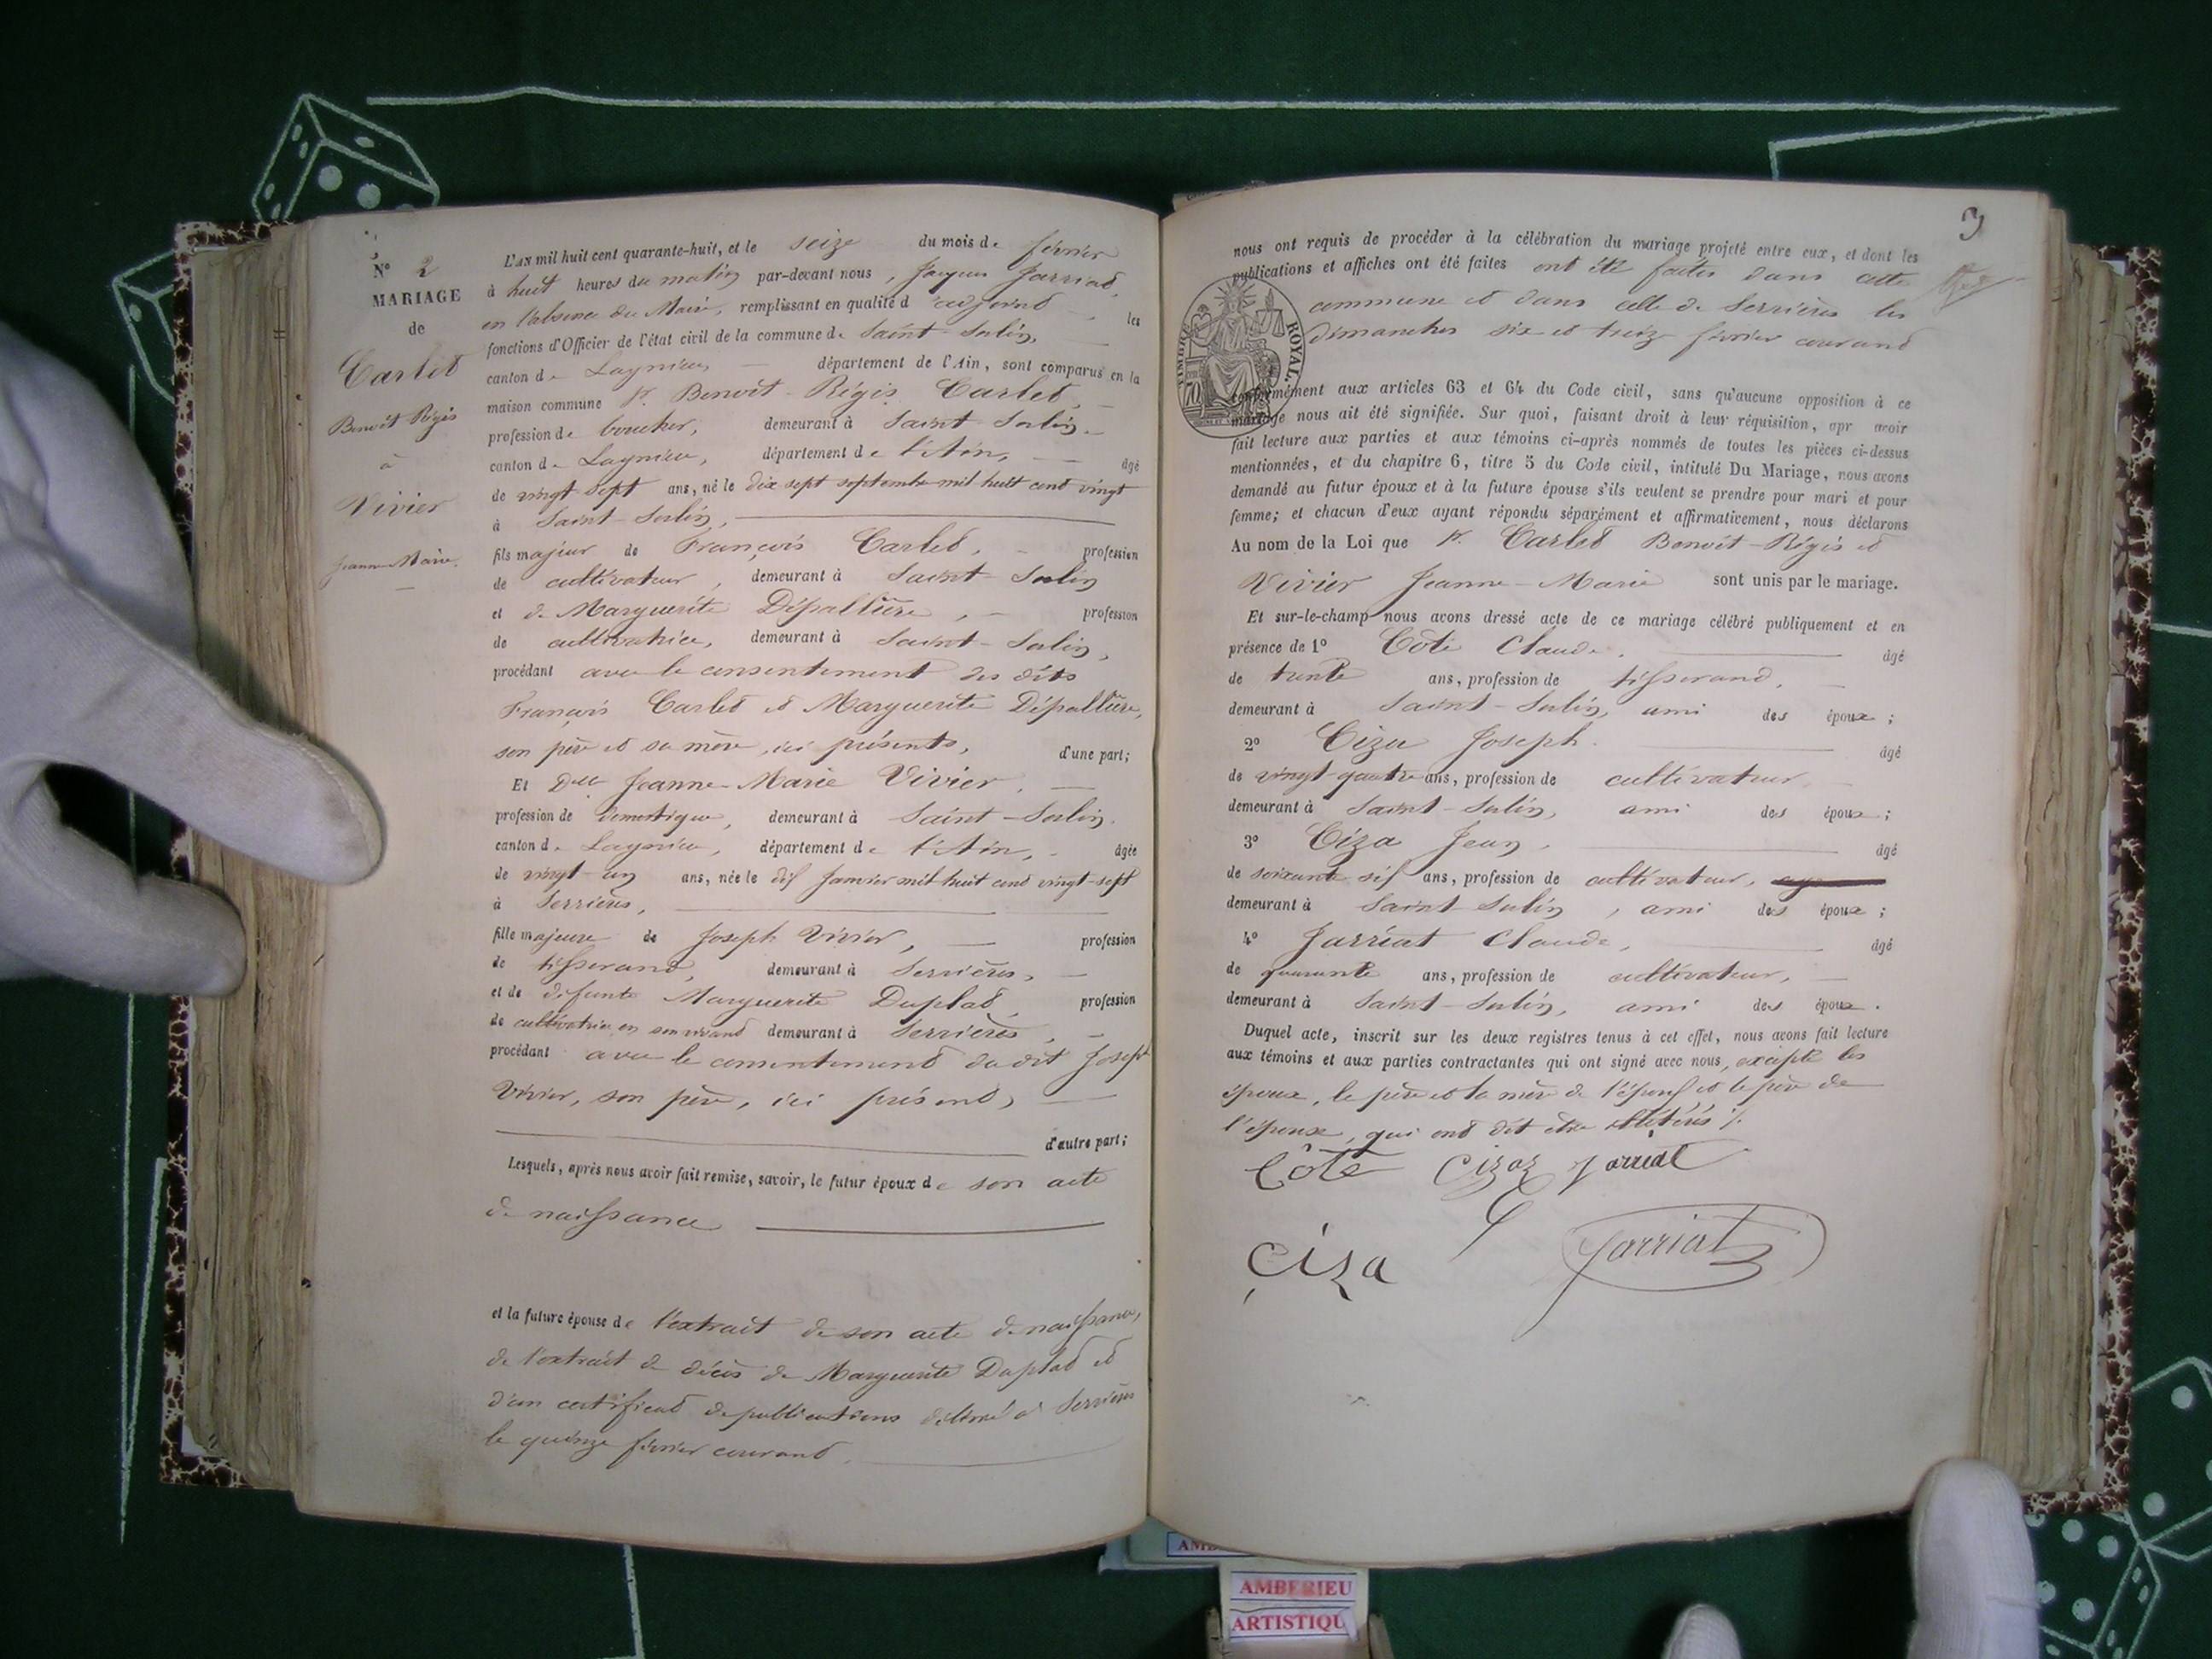 N° 2
MARIAGE
de
Carlet
Benoît Régis
à
Vivier
Jeanne-Marie.
L'An mil huit cent quarante-huit, et le seize du mois de février
à huit heures du matin par-devant nous, Jacques Jarriat,
en l'absence du Maire, remplissant en qualité d'adjoint les
fonctions d'Officier de l'état civil de la commune de Saint-Sulin,
canton de Lagnieu, département de l'Ain, sont comparus en la
maison commune Sr. Benoit-Régis Carlet,
profession de boucher, demeurant à Saint-Sulin,
canton de Lagnieu, département de l'Ain, âgé
de vingt-sept ans, né le dix sept septembre mil huit cent vingt
à Saint-Sulin,
fils majeur de François Carlet, profession
de cultivateur, demeurant à Saint-Sulin
et de Marguerite Dépallière, profession
de cultivatrice, demeurant à Saint-Sulin,
procédant avec le consentement des dits
François Carlet et Marguerite Dépallière,
son père et sa mère, ici présents, d'une part;
Et Dlle Jeanne-Marie Vivier,
profession de domestique, demeurant à Saint-Sulin.
canton de Lagnieu, département de l'Ain, âgée
de vingt-un ans, née le dix Janvier mil huit cent vingt-sept
à Serrières,
fille majeure de Joseph Vivier, profession
de tisserand, demeurant à Serrières,
et de défunte Marguerite Duplat, profession
de cultivatrice en son vivant demeurant à Serrières,
procédant avec le consentement du dit Joseph
Vivier, son père, ici présent,
d'autre part;
Lesquels, après nous avoir fait remise, savoir, le futur époux de son acte
de naissance
et la future épouse de l'extrait de son acte de naissance,
de l'extrait de décès de Marguerite Duplat et
d'un certificat de publications délivré à Serrières
le quinze février courant.
3
nous ont requis de procéder à la célébration du mariage projeté entre eux, et dont les
publications et affiches ont été faites ont été faites dans cette
commune et dans celle de Serrières les
dimanches six et treize février courant
TIMBRE ROYAL
conformément aux articles 63 et 64 du Code civil, sans qu'aucune opposition à ce
mariage nous ait été signifiée. Sur quoi, faisant droit à leur réquisition, apr avoir
fait lecture aux parties et aux témoins ci-après nommés de toutes les pièces ci-dessus
mentionnées, et du chapitre 6, titre 5 du Code civil, intitulé Du Mariage, nous avons
demandé au futur époux et à la future épouse s'ils veulent se prendre pour mari et pour
femme; et chacun d'eux ayant répondu séparément et affirmativement, nous déclarons
Au nom de la Loi que Sr. Carlet Benoit-Régis et
Vivier Jeanne-Marie sont unis par le mariage.
Et sur-le-champ nous avons dressé acte de ce mariage célébré publiquement et en
présence de 1° Coté Claude, âgé
de trente ans, profession de tisserand,
demeurant à Saint-Sulin, ami des époux;
2° Ciza Joseph. âgé
de vingt-quatre ans, profession de cultivateur,
demeurant à Saint-Sulin, ami des époux;
3° Ciza Jean, âgé
de soixante six ans, profession de cultivateur,
demeurant à Saint-Sulin, ami des époux;
4° Jarriat Claude, âgé
de quarante ans, profession de cultivateur,
demeurant à Saint-Sulin, ami des époux.
Duquel acte, inscrit sur les deux registres tenus à cet effet, nous avons fait lecture
aux témoins et aux parties contractantes qui ont signé avec nous, excepté les
époux, le père et la mère de l'époux et le père de
l'épouse, qui ont dit être illitérés
Côte Cizaz Jarriat
Ciza Jarriat
AMBERIEU
ARTISTIQU